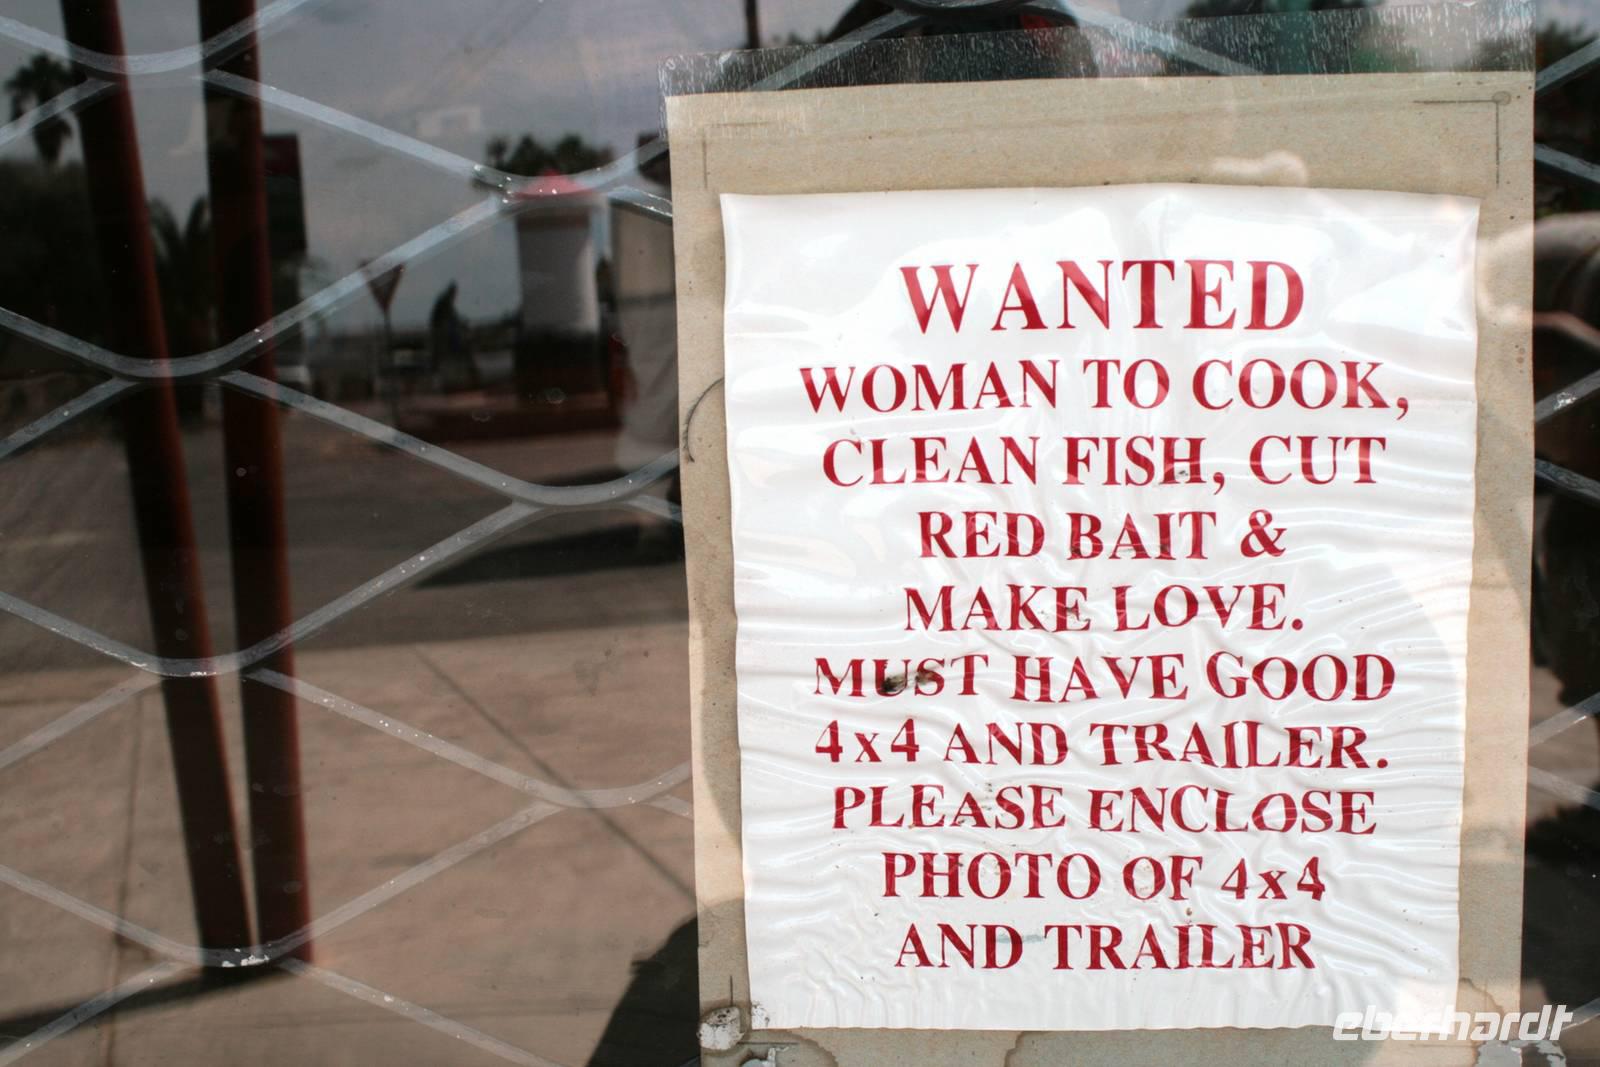 WANTED
WOMAN TO COOK,
CLEAN FISH, CUT
RED BAIT &
MAKE LOVE.
MUST HAVE GOOD
4x4 AND TRAILER.
PLEASE ENCLOSE
PHOTO OF 4x4
AND TRAILER
eberhardt